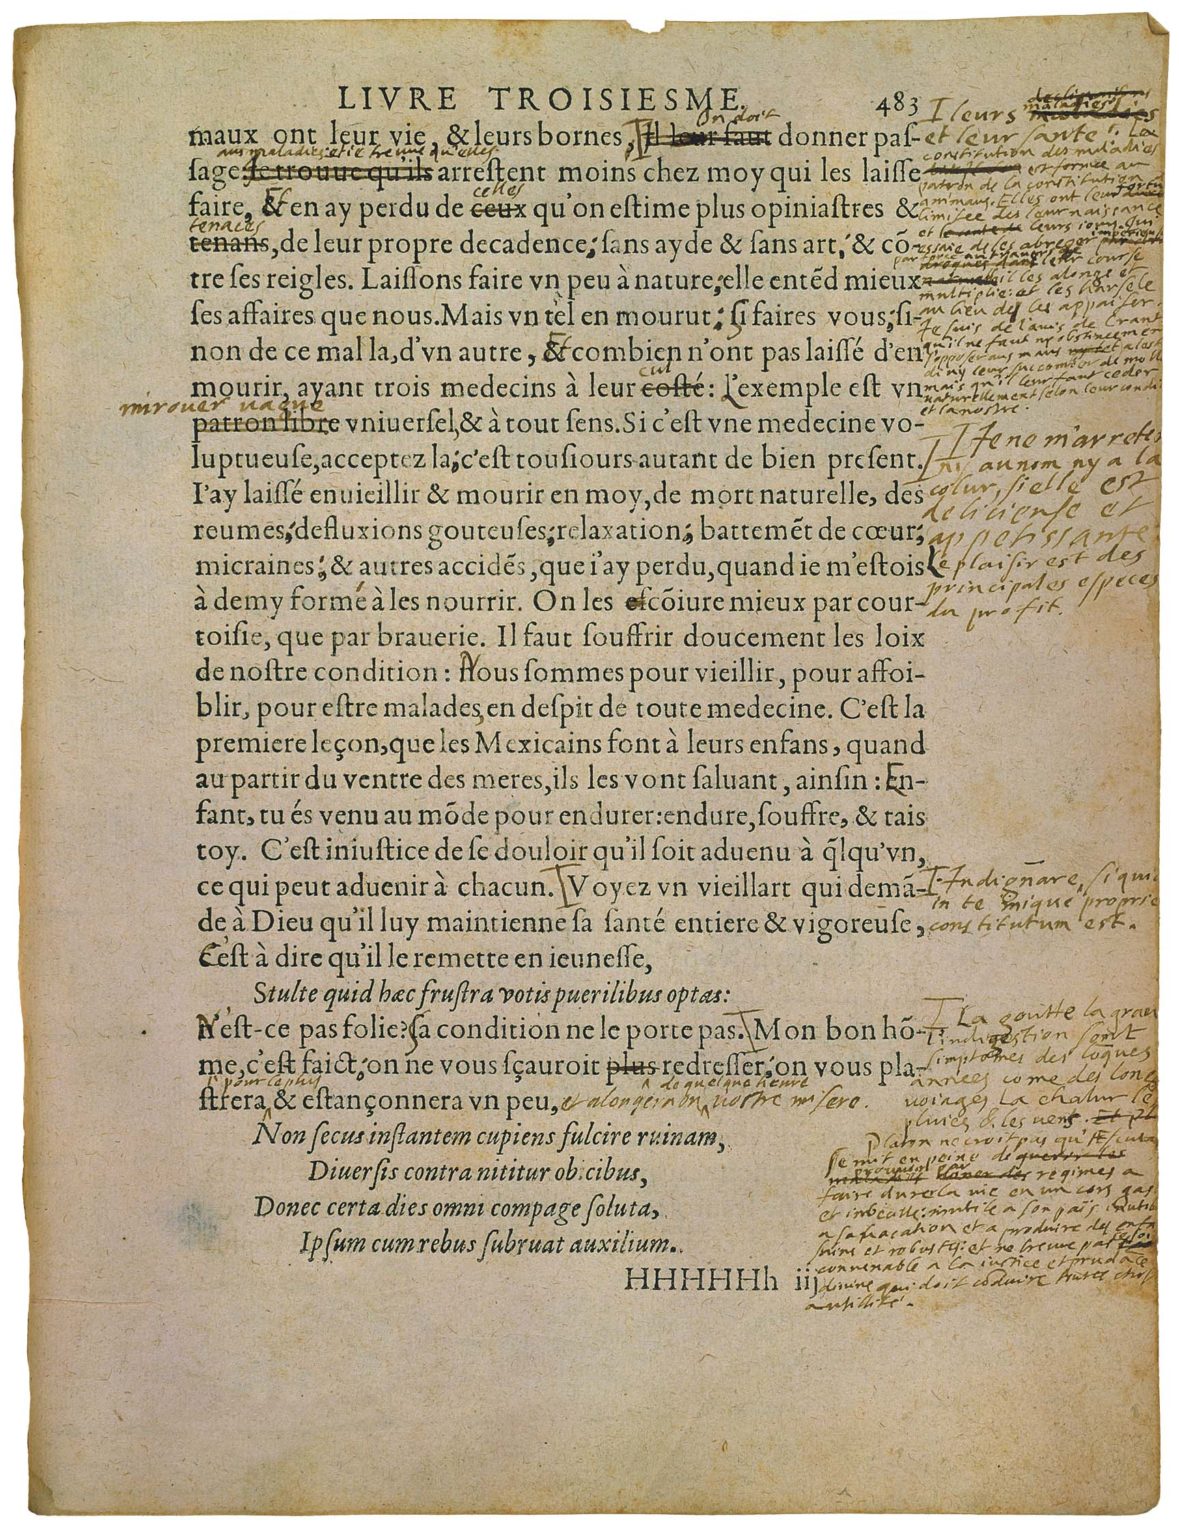 LIVRE TROISIESME. 483
on doit
maux ont leur vie, & leurs bornes, Il leur faut donner pas-
aus maladies: et ie treuve qu'elles
sage: Ie trouue qu'ils arrestent moins chez moy qui les laisse
celles
faire, Et & en ay perdu de ceux qu'on estime plus opiniastres &
tenaces
tenans, de leur propre decadence; sans ayde & sans art, & cõ-
tre ses reigles. Laissons faire vn peu à nature; elle entẽd mieux
ses affaires que nous. Mais vn tèl en mourut; si faires vous; si-
non de ce mal la, d'vn autre, Et & combien n'ont pas laissé d'en
cul
mourir, ayant trois medecins à leur costé: L'exemple est vn
mirouer vague
patron libre vniuersel, & à tout sens. Si c'est vne medecine vo-
luptueuse, acceptez la; c'est tousiours autant de bien present.
I'ay laissé enuieillir & mourir en moy, de mort naturelle, des
reumes; defluxions gouteuses; relaxation; battemẽt de cœur;
micraines; & autres accidẽs, que i'ay perdu, quand ie m'estois
à demy formé à les nourrir. On les escõiure mieux par cour-
toisie, que par brauerie. Il faut souffrir doucement les loix
de nostre condition: Nous sommes pour vieillir, pour affoi-
blir, pour estre malades, en despit de toute medecine. C'est la
premiere leçon, que les Mexicains font à leurs enfans, quand
au partir du ventre des meres, ils les vont saluant, ainsin: En-
fant, tu és venu au mõde pour endurer: endure, souffre, & tais
toy. C'est iniustice de se douloir qu'il soit aduenu à q̃lqu'vn,
ce qui peut aduenir à chacun. Voyez vn vieillart qui demã-
de à Dieu qu'il luy maintienne sa santé entiere & vigoreuse,
C'est à dire qu'il le remette en ieunesse,
Stulte quid hæc frustra votis puerilibus optas:
N'est-ce pas folie? sa condition ne le porte pas. Mon bon hõ-
me, c'est faict; on ne vous sçauroit plus redresser; on vous pla-
pour le plus de quelque heure
strera & estançonnera vn peu, et alongera on vostre misere.
Non secus instantem cupiens fulcire ruinam,
Diuersis contra nititur obicibus,
Donec certa dies omni compage soluta,
Ipsum cum rebus subruat auxilium.
HHHHHh iij
leurs maladies
et leur sante: La
constitution des maladies
est formee au
patron de la constitution des
animaus. Elles ont leur
limitee des leur naissance
et leurs iours. Qui
essaie de les abreger
par force au travers de leur course
il les alonge et
multiplie: et les harselle
au lieu de les appaiser.
Je suis de l'avis de Crantor
qu'il ne faut ny obstineement
s'opposer aus maus
ny leur succomber de mollesse
mais qu'il leur faut ceder
naturellement selon leur condition
et la nostre.
Je ne m'arreterai
ny au nom ny a la
colur, si elle est
delitieuse et
appetissante:
Le plaisir est des
principales especes
du profit.
Indignare, si quid
in te inique proprie
constitutum est.
La goutte la gravelle
l'indigestion sont
simptomes des longues
annees come des longs
voiages la chalur les
pluies & les vens.
Platon ne croit pas qu'Esculape
se mit en peine de
prouuoir par regimes a
faire durer la vie en un cors gasté
et imbecille: inutile a son païs inutile
a sa vacation et a produire des enfans
sains et robustes: et ne treuve pas
convenable a la iustice et prudance
divine qui doit conduire toutes choses
a utilité.